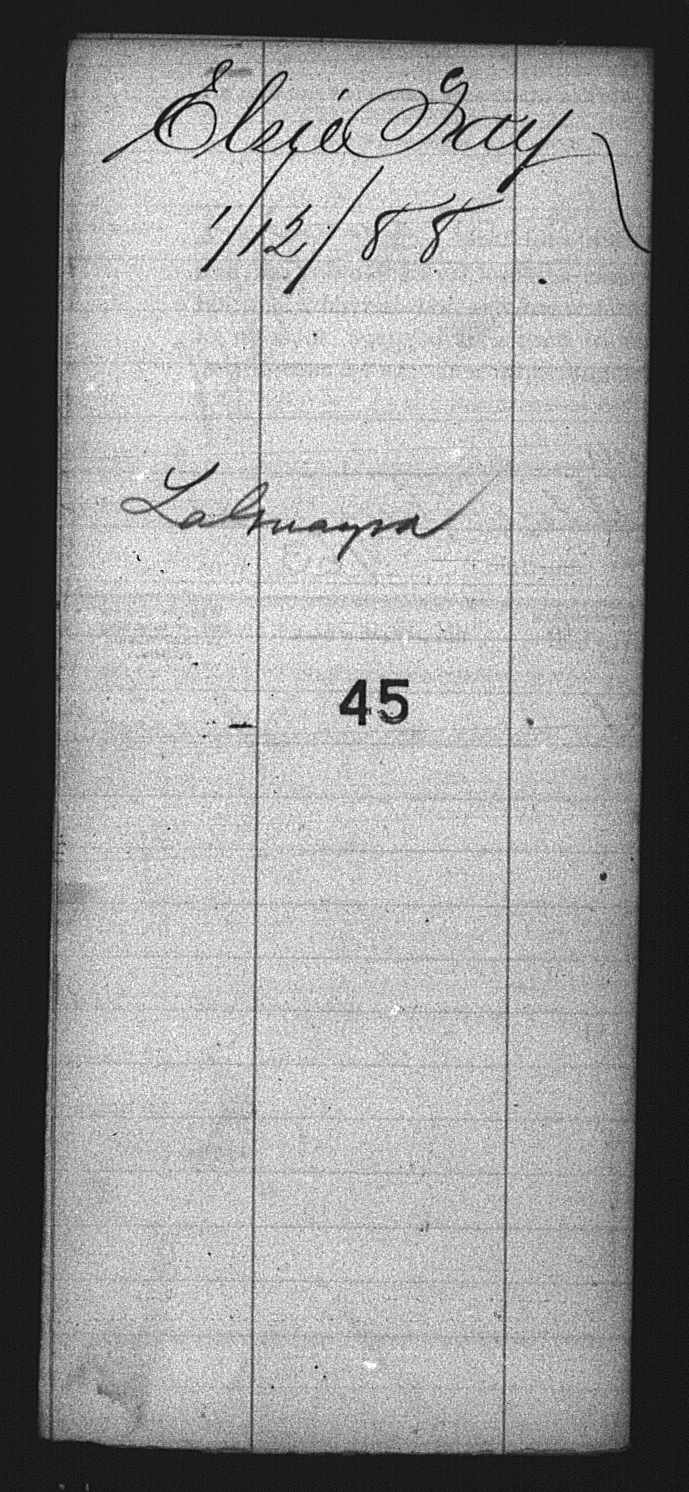 Elsie Gray
1/12/88
LaGuayra
45